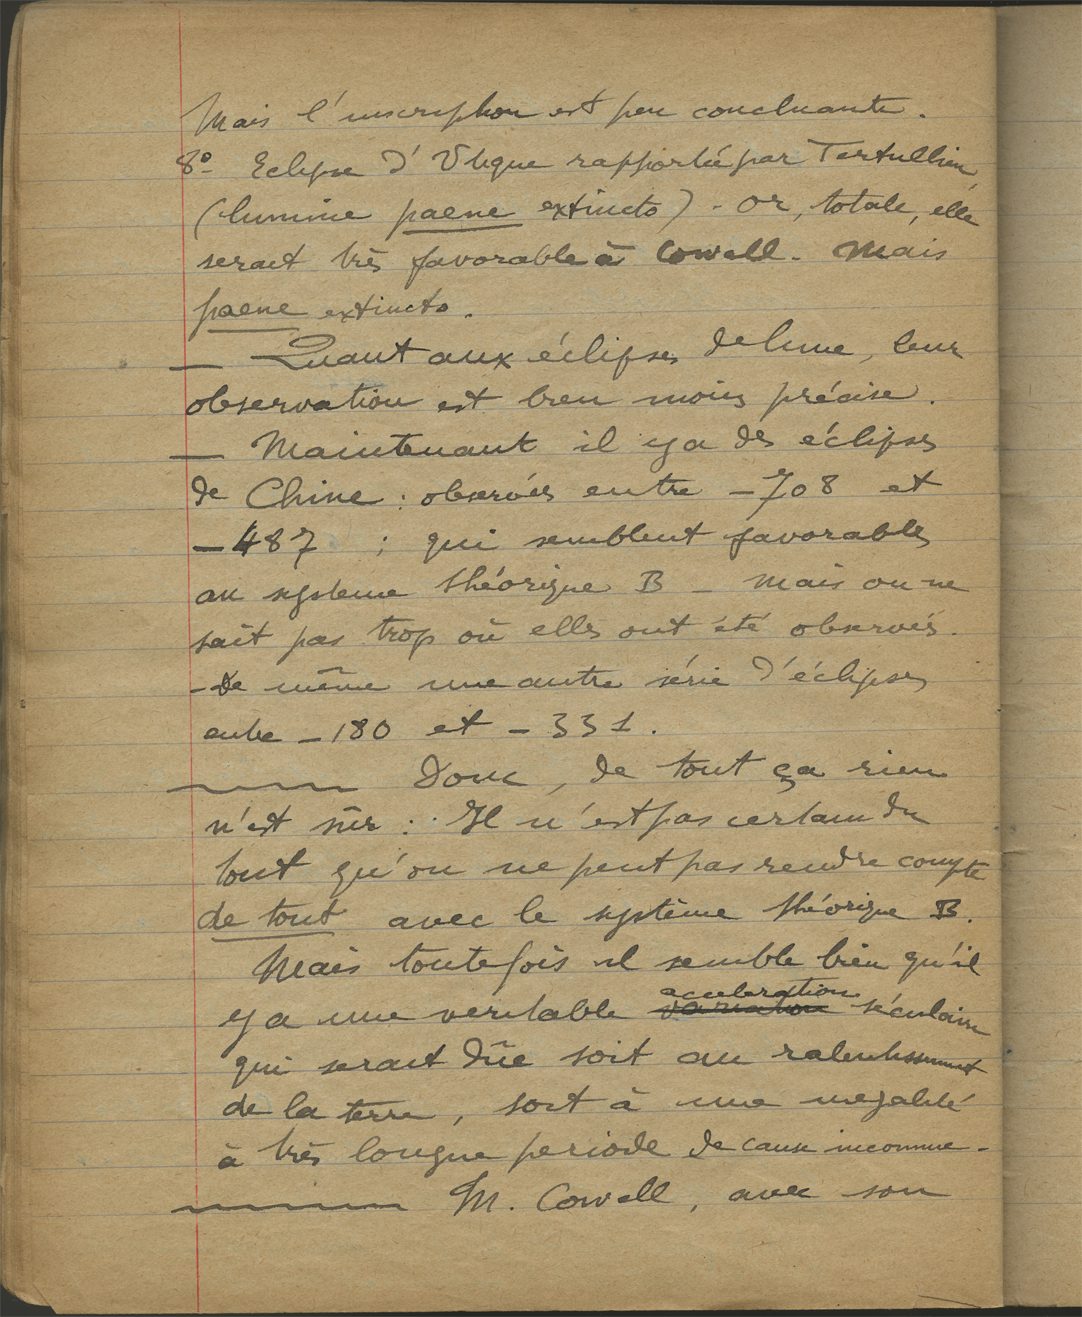 Mais l'inscription est peu concluante.
8º Eclipse d'Utique rapportée par Tertullien,
(lumine paene extincto) - or, totale, elle
serait très favorable à Cowell. Mais
paene extincto.
— Quant aux éclipses de lune, leur
observation est bien moins précise.
— Maintenant il y a des éclipses
de Chine : observées entre -708 et
-487 ; qui semblent favorables
au systeme théorique B - Mais on ne
sait pas trop où elles ont été observées.
- De même une autre série d'éclipses
entre -180 et -331.
Donc, de tout ça rien
n'est sûr : Il n'est pas certain du
tout qu'on ne peut pas rendre compte
de tout avec le système théorique B.
Mais toutefois il semble bien qu'il
acceleration
y a une veritable variation séculaire
qui serait dûe soit au ralentissement
de la terre, soit à une inegalité
à très longue periode de cause inconnue -
M. Cowell, avec son